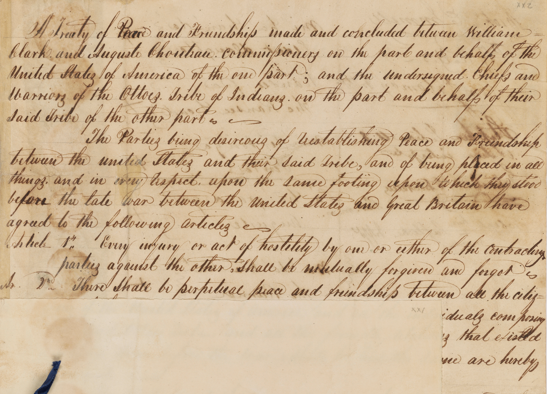 A Treaty of Peace and Friendship made and concluded between William
Clark and Auguste Chouteau commissioners on the part and behalf of the
United States of America of the one part; and the undersigned Chiefs and
Warriors of the Ottoez tribe of Indians on the part and behalf of their
said tribe of the other part.
The Parties being desireous of reestablishing Peace and Friendship
between the united States and their said tribe, and of being placed in all
things and in every respect upon the same footing upon which they stood
before the late war between the United States and Great Britain have
agreed to the following articles
Article 1st Every injury or act of hostility by one or either of the contracting
parties against the other, shall be mutually forgiven and forgot
Ar. 2nd There shall be perpetual peace and friendship between all the citiz-
iduals composing
that existed
me are hereby